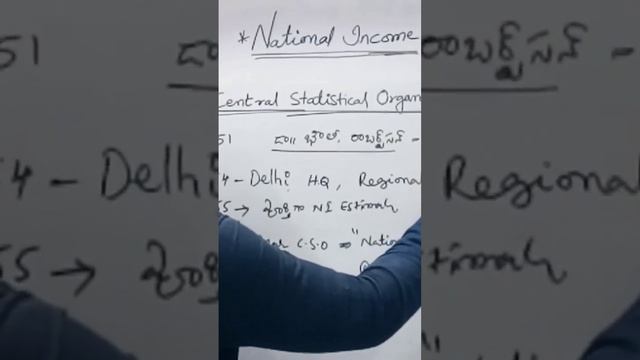 * National Income
Central Statistical Organ
51 డా|| బౌలి. రాబర్ట్ సన్ -
4 - Delhi H.Q, Regional
55 → పూర్తిగా NI Estimates
C.S.O ⇒ "Natio